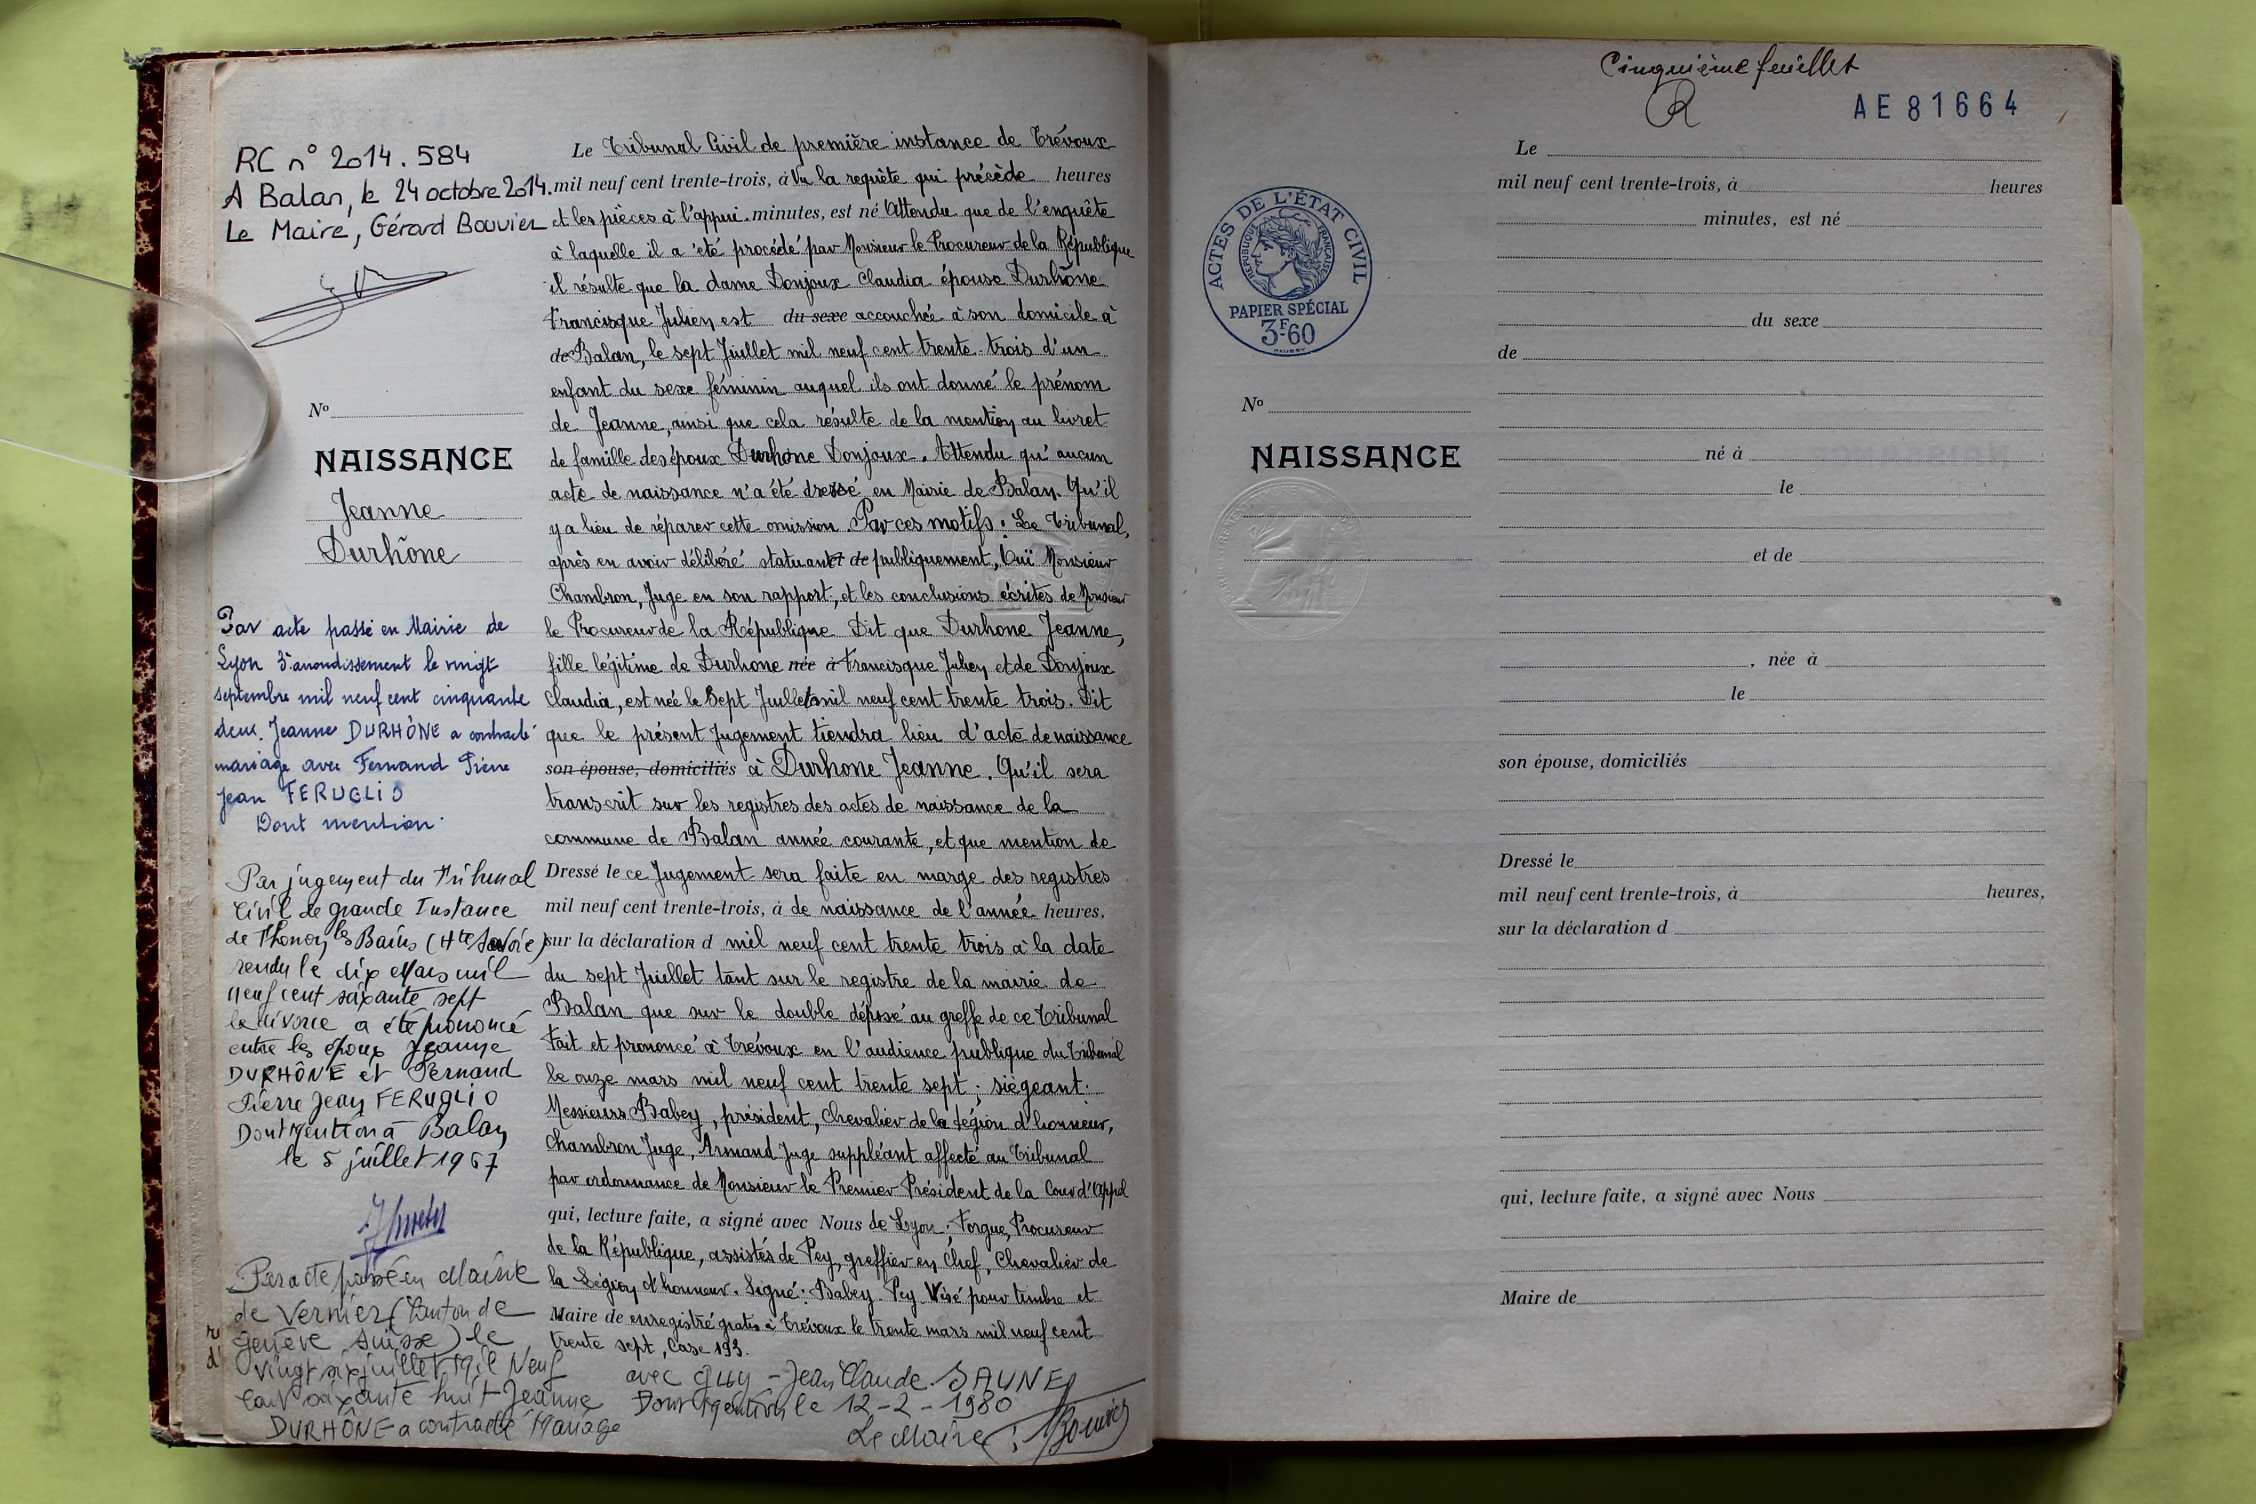 RC n° 2014.584
A Balan, le 24 octobre 2014.
Le Maire, Gérard Bouvier
N°
NAISSANCE
Jeanne
Durhône
Par acte passé en Mairie de
Lyon 3e arrondissement le vingt
septembre mil neuf cent cinquante
deux. Jeanne DURHÔNE a contracté
mariage avec Fernand Pierre
Jean FERUGLIO
Dont mention.
Par jugement du Tribunal
Civil de grande Instance
de Thonon les Bains (Hte Savoie)
rendu le dix Mars mil
neuf cent soixante sept
le divorce a été prononcé
entre les époux Jeanne
DURHÔNE et Fernand
Pierre Jean FERUGLIO
Dont Mention à Balan
le 5 juillet 1967
Par acte passé en Mairie
de Vernier (Canton de
Genève Suisse) le
vingt six juillet Mil Neuf
Cent soixante huit Jeanne
DURHÔNE a contracté Mariage
avec Guy - Jean Claude JAUNE
Dont Mention le 12-2-1980
Le Maire : Bouvier
Le Tribunal Civil de première instance de Trévoux
mil neuf cent trente-trois, à Vu la requête qui précède heures
et les pièces à l'appui. minutes, est né Attendu que de l'enquête
à laquelle il a été procédé par Monsieur le Procureur de la République
il résulte que la dame Donjoux Claudia épouse Durhône
Francisque Julien est du sexe accouchée à son domicile à
de Balan, le sept Juillet mil neuf cent trente-trois d'un
enfant du sexe féminin auquel ils ont donné le prénom
de Jeanne, ainsi que cela résulte de la mention au livret
de famille des époux Durhone Donjoux. Attendu qu'aucun
acte de naissance n'a été dressé en Mairie de Balan. Qu'il
y a lieu de réparer cette omission. Par ces motifs. Le Tribunal,
après en avoir délibéré statuant et de publiquement, Ouï Monsieur
Chambron, Juge en son rapport, et les conclusions écrites de Monsieur
le Procureur de la République Dit que Durhone Jeanne,
fille légitime de Durhone née à Francisque Julien et de Donjoux
Claudia, est née le Sept Juillet mil neuf cent trente trois. Dit
que le présent Jugement tiendra lieu d'acte de naissance
son épouse, domiciliés à Durhone Jeanne. Qu'il sera
transcrit sur les registres des actes de naissance de la
commune de Balan année courante, et que mention de
Dressé le ce Jugement sera faite en marge des registres
mil neuf cent trente-trois, à de naissance de l'année heures,
sur la déclaration d mil neuf cent trente trois à la date
du sept Juillet tant sur le registre de la mairie de
Balan que sur le double déposé au greffe de ce Tribunal
Fait et prononcé à Trévoux en l'audience publique du Tribunal
le onze mars mil neuf cent trente sept ; siégeant:
Messieurs Babey, président, Chevalier de la Légion d'honneur,
Chambron Juge, Armand Juge suppléant affecté au Tribunal
par ordonnance de Monsieur le Premier Président de la Cour d'Appel
qui, lecture faite, a signé avec Nous de Lyon ; Forgue, Procureur
de la République, assistés de Pey, greffier en Chef, Chevalier de
la Légion d'honneur. Signé: Babey. Pey Visé pour timbre et
Maire de enregistré gratis à Trévoux le trente mars mil neuf cent
trente sept, Case 193.
Cinquième feuillet
AE 81664
ACTES DE L'ÉTAT CIVIL
RÉPUBLIQUE FRANÇAISE
PAPIER SPÉCIAL
3F.60
N°
NAISSANCE
Le
mil neuf cent trente-trois, à heures
minutes, est né
du sexe
de
né à
le
et de
, née à
le
son épouse, domiciliés
Dressé le
mil neuf cent trente-trois, à heures,
sur la déclaration d
qui, lecture faite, a signé avec Nous
Maire de